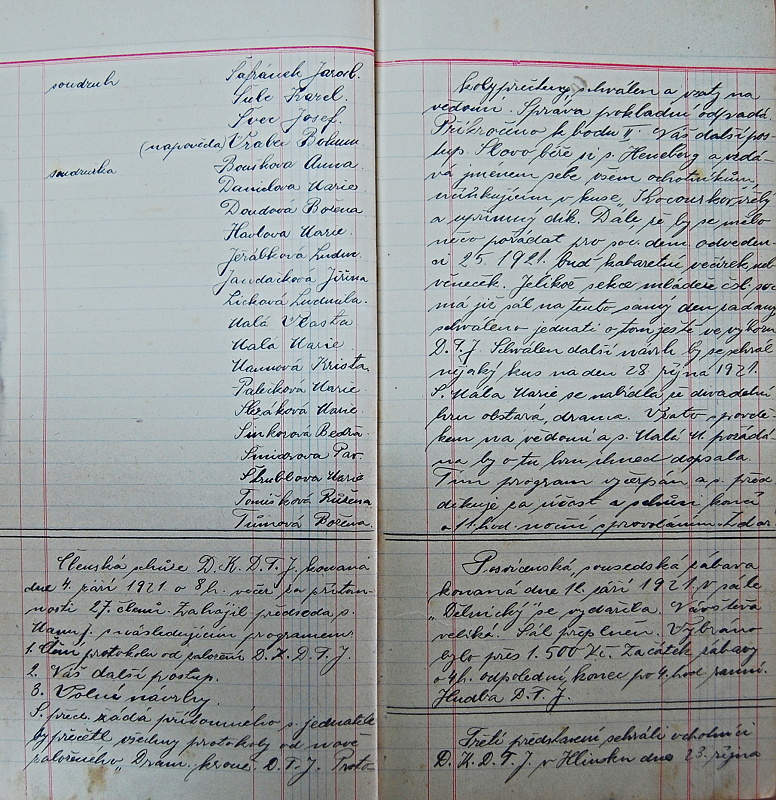 soudruh Šafránek Jarosl.
Šulc Karel.
Švec Josef.
(napověda) Vrabec Bohum
soudružka Bouškova Anna.
Danielova Marie.
Doudová Božena
Havlova Marie.
Jeřábková Ludm.
Jandačková Jiřina
Licková Ludmila.
Malá Vlasta
Malá Marie.
Mannová Krista
Palečková Marie.
Slezáková Marie
Šinkorová Bedřa.
Šmidrova Pav.
Štrublova Marie
Tomišková Růžena
Tůmová Božena.
Členská schůze D.K.D.T.J. konaná
dne 4. září 1921 o 8h. večer za přítom-
nosti 27. členů. Zahájil předseda s.
Mann J. s následujícím programem:
1. Čtení protokolu od založení D.K.D.T.J.
2. Náš další postup.
3. Volné návrhy.
S. před. žádá přítomného s. jednatele
by přečetl všechny protokoly od nově
založeného „Dram. krouž. D.T.J. Proto-
koly přečteny, schválen a vzaty na
vědomí. Správa pokladní odpadá.
Přikročeno k bodu II. Náš další pos-
tup. Slovo béře si s. Heneberg a vzdá-
vá jmenem sebe všem ochotníkům,
účinkujícím v kuse, „Kocourkov střely
a upřímný dík. Dále, že by se mělo
něco pořádat pro soc. dem. odveden-
ci 25. 1921. buď kabaretní večírek, neb
věneček. Jelikož sekce mládeže čsl. soc.
má již sál na tento samý den zadaný
schváleno jednati o tom ještě ve výboru
D.T.J. Schválen další návrh by se sehrál
nějaký kus na den 28 října 1921.
S. Malá Marie se nabídla že divadelní
hru obstará, drama. Vzato s povde-
kem na vědomí a s. Malá M. požádá-
na by o tu hru ihned dopsala.
Tím program vyčerpán a s. před.
děkuje za účast a schůzi končí
o 11. hod. noční s provoláním: Zdar.
Posvícenská, sousedská zábava
konaná dne 12. září 1921 v sále
„Dělnický se vydařila. Návštěva
veliká. Sál přeplněn. Vybráno
bylo přes 1.500 Kč. Začátek zábavy
o 4 h. odpolední, konec po 4. hod ranní.
Hudba D.T.J.
Třetí představení sehráli ochotníci
D.K.D.T.J. v Hlinsku dne 23. října